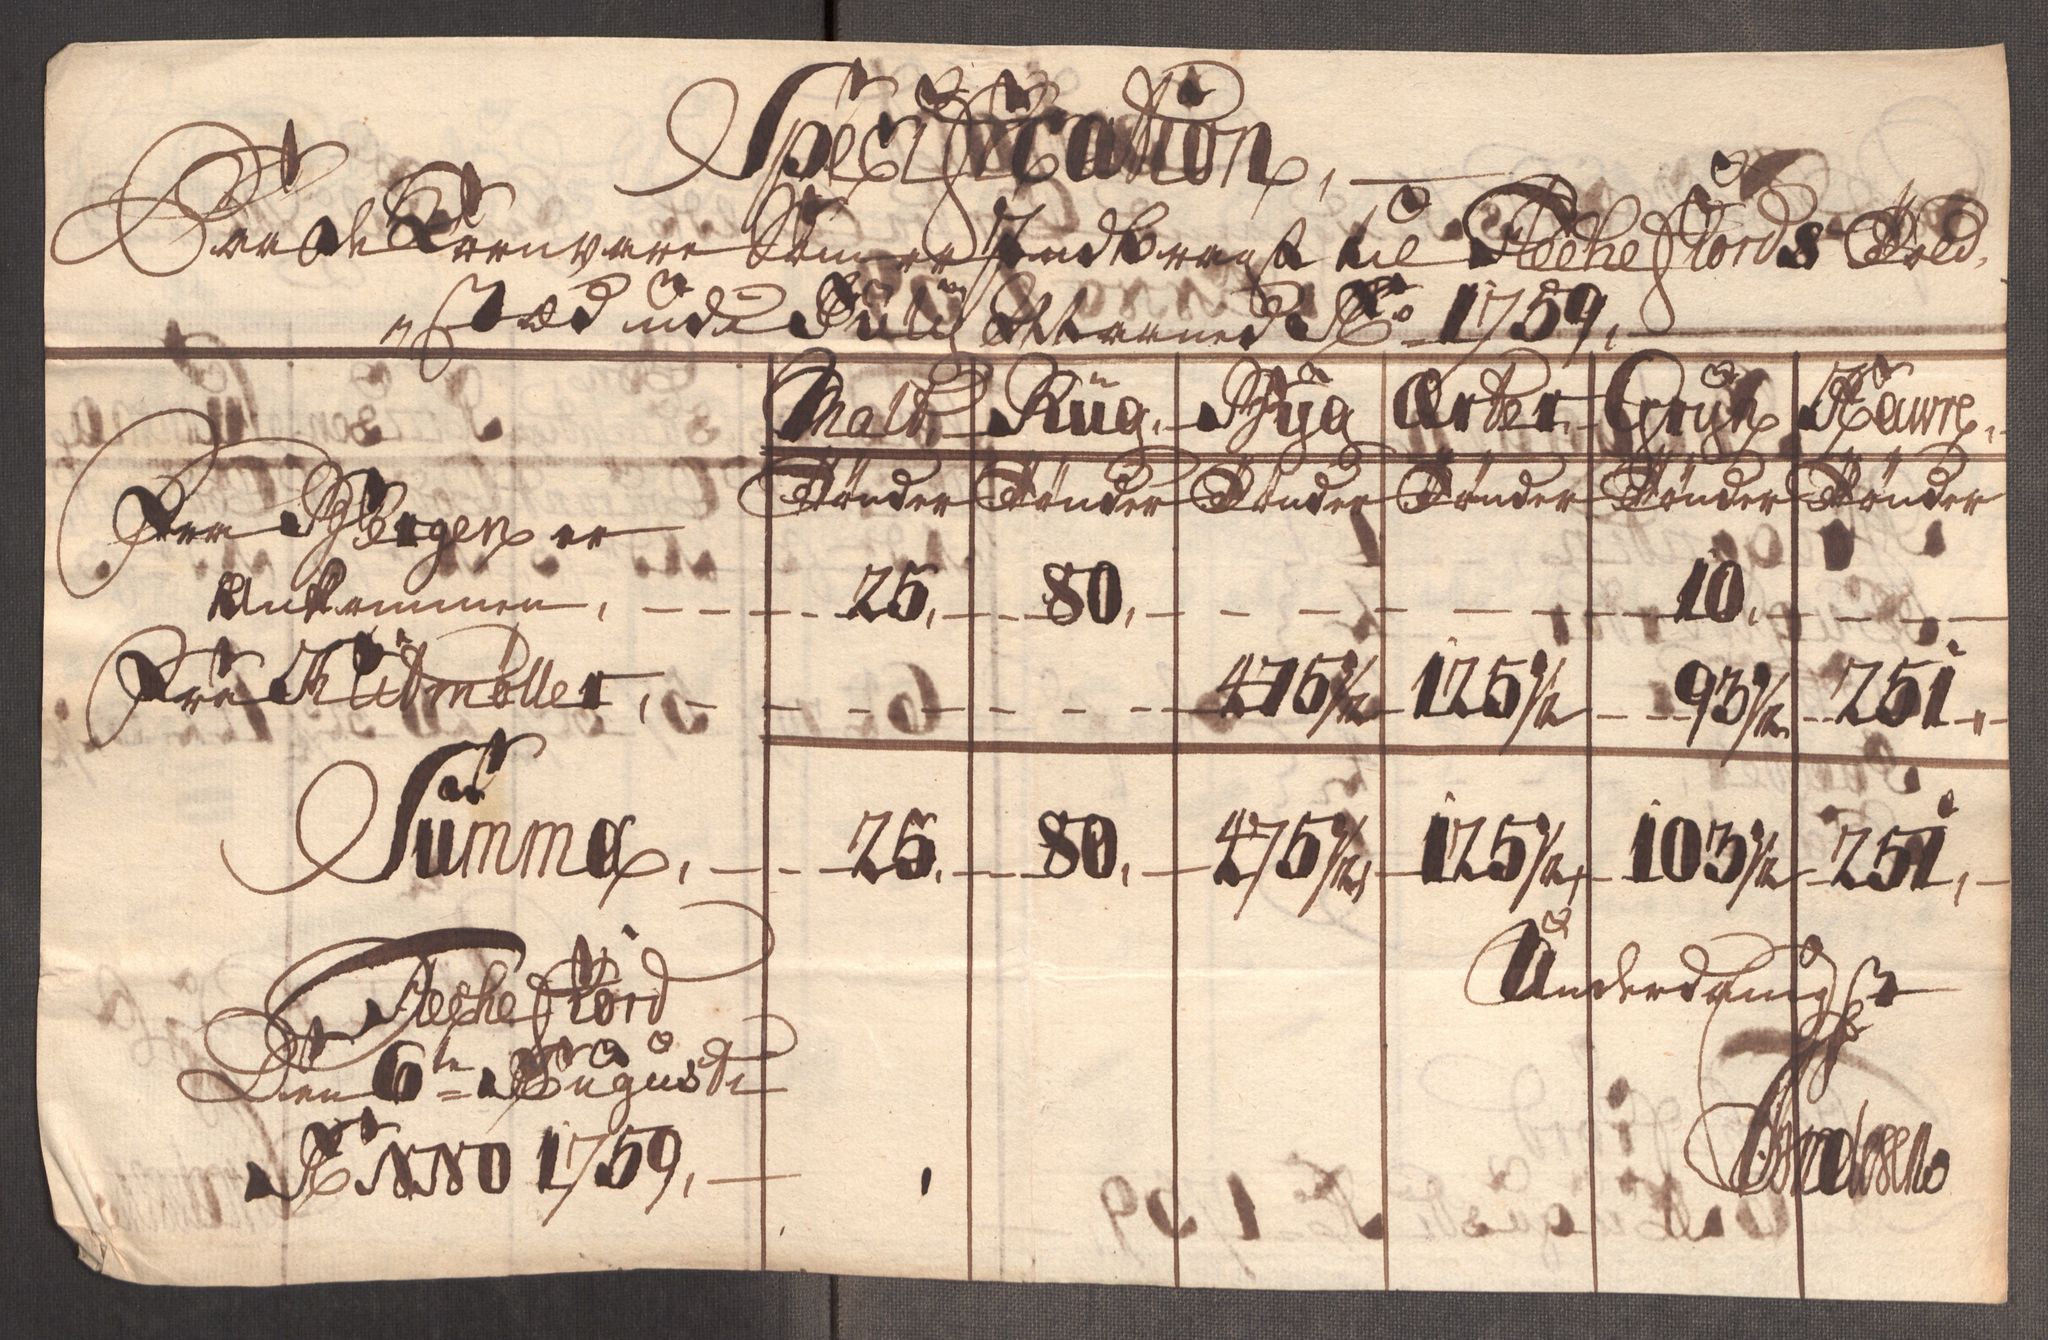 Specification,
Paa de Kornvare Som er Indbragt til Flechefiords Told,
Stæd udi Julij Maaned Ao 1759.
Malt, Rüg, Bÿg Erter, Grÿn Hawre,
Tönder Tönder Tönder Tönder Tönder Tönder
Fra Bergen er
Ankommen, 25, 80, 10,
Fra Hiibmöller, 475 1/2 125 1/2 93 1/2 251,,
Summa, 25, 80, 475 1/2, 125 1/2, 103 1/2 251,
Flechefiord
Den 6te Augusti
ANNO 1759,
Underdanigst